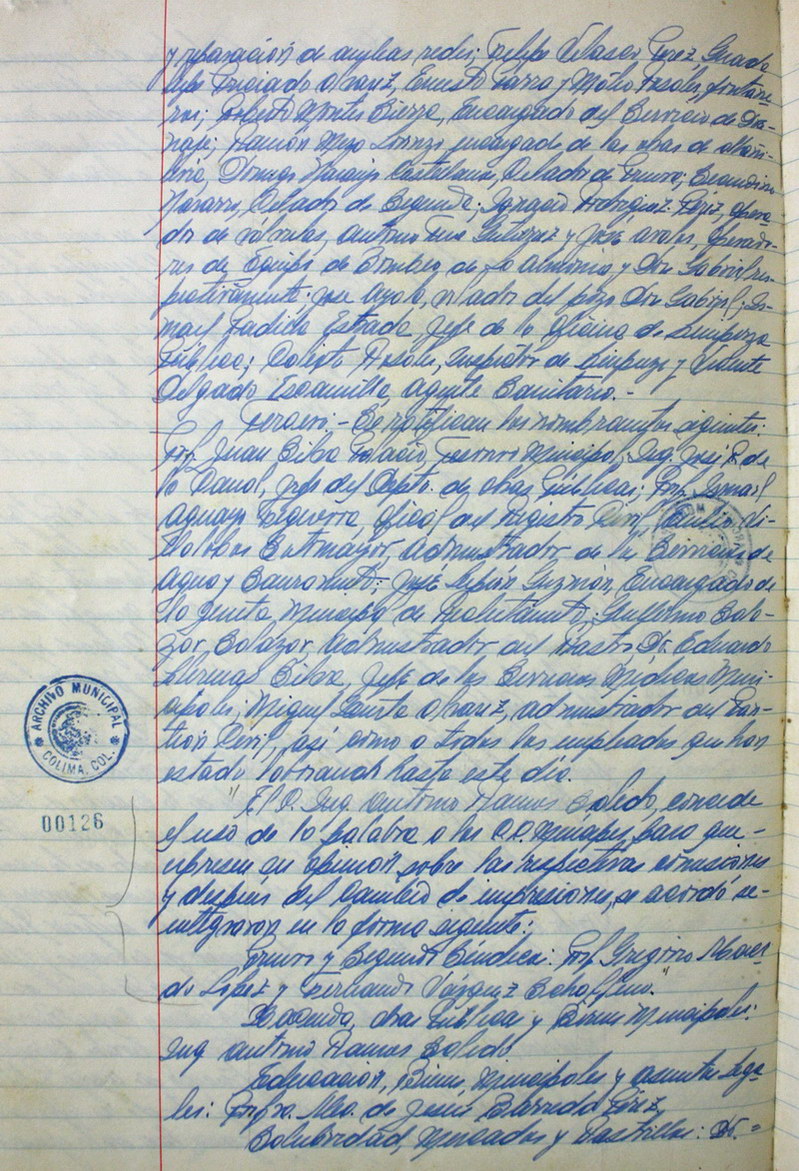 y reparación de ambas redes; Felipe Velasco Pérez, Guada
lupe Preciado Chavez, Ernesto Parra y Mario Rosales, fontane-
ros; Roberto Montes Bierzo, Encargado del Servicio de Dre-
naje; Ramón Meza Lorenzo encargado de las obras de albañi-
lería, Naranjo Castellanos, Celador de Primera; Secundino
Navarro, Celador de Segunda; Ignacio Rodríguez López, opera-
dor de válvulas, Antonio Gutierrez y José Avalos, operado-
res de Equipo de bombeo de la Armonía y Don Gabriel res-
pectivamente; José Ayala, velador del pozo Don Gabriel; Is-
mael Padilla Estrada, Jefe de la Oficina de Limpieza
Pública; Calixto Rosales, Inspector de Limpieza y Vicente
Delgado Escamilla, agente Sanitario.-
Tercero.- Se ratifican los nombramientos siguientes:
Prof. Juan Silva Palacio, Tesorero Municipal; Ing. José R. de
la Canal, Jefe del Depto. de obras Públicas; Prof. Ismael
Aguayo Figueroa, Oficial del Registro Civil; Vi-
llalobos Sotmayor, administrador de los Servicios de
agua y Saneamiento; José Guzmán, Encargado de
la Junta Municipal de Reclutamiento; Guillermo Sala-
zar Salazar, administrador del Rastro; Dr. Eduardo
Llerenas Silva, Jefe de los Servicios Médicos Muni-
cipales; Miguel Chavez, administrador del Pan-
teón Civil, así como a todos los empleados que han
estado laborando hasta este día.
"El C. Ing. Antonio Ramos Salido, concede
el uso de la palabra a los C.C. Munícipes, para que-
expresen su opinión sobre las respectivas comisiones
y después del cambio de impresiones, se acordó se-
integraran en la forma siguiente:
Primero y Segundo Síndico: Prof. Gregorio Mace-
do López y Fernando Vázquez Schiaffino."
Hacienda, obras Públicas y Bienes Municipales:
Ing. Antonio Ramos Salido
Educación, Bienes Municipales y asuntos Lega-
les: Profra. Ma. de Jesús Pérez,
Salubridad, Mercados y Rastrillos: Dr.=
ARCHIVO MUNICIPAL
COLIMA, COL.
00126